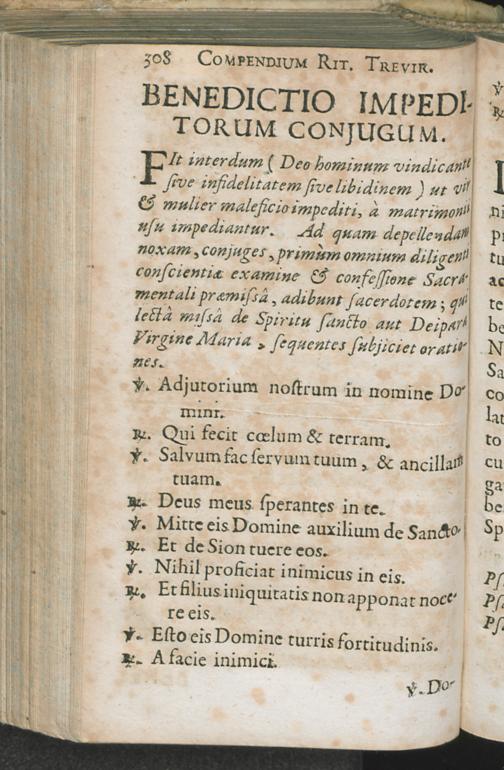 308 COMPENDIUM RIT. TREVIR.
BENEDICTIO IMPEDI-
TORUM CONJUGUM.
FIt interdum ( Deo hominum vindicante
ſive infidelitatem ſive libidinem ) ut vir
& mulier maleficio impediti, à matrimonii
uſu impediantur. Ad quam depellendam
noxam, conjuges, primùm omnium diligenti
conſcientiæ examine & confeſſione Sacra-
mentali præmiſsâ, adibunt ſacerdotem; qui
lectâ miſsâ de Spiritu ſancto aut Deiparâ
Virgine Maria, ſequentes ſubjiciet oratio-
nes.
℣. Adjutorium noſtrum in nomine Do-
mini.
℟. Qui fecit cœlum & terram.
℣. Salvum fac ſervum tuum, & ancillam
tuam.
℟. Deus meus ſperantes in te.
℣. Mitte eis Domine auxilium de Sancto.
℟. Et de Sion tuere eos.
℣. Nihil proficiat inimicus in eis.
℟. Et filius iniquitatis non apponat noce-
re eis.
℣. Eſto eis Domine turris fortitudinis.
℟. A facie inimici.
℣. Do-